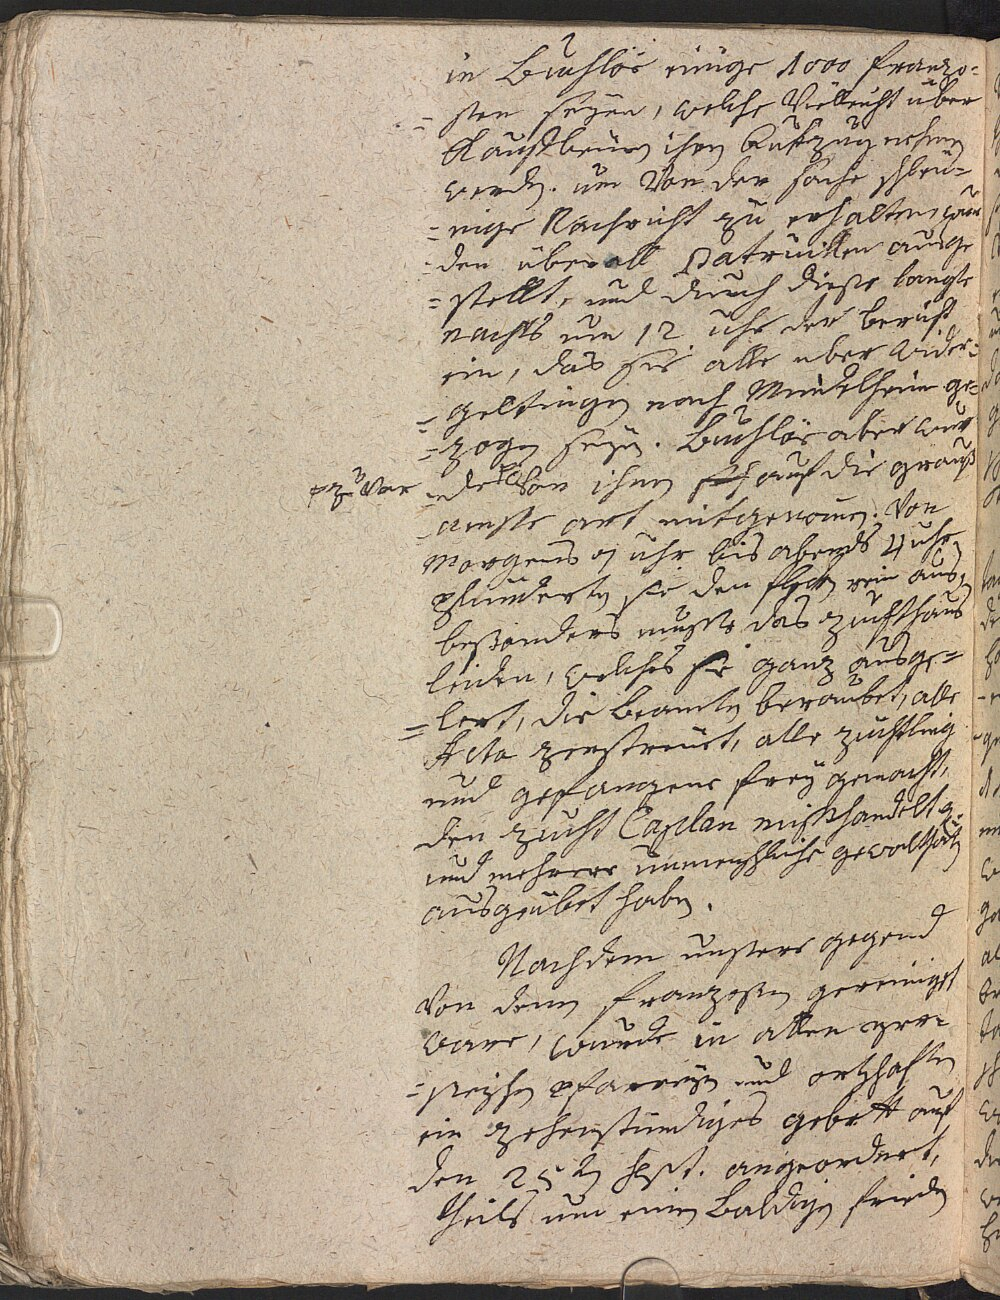 in Buchloe einige 1000 Franzo-
-sen seyen, welche Vielleicht über
Kaufbeurn ihrn Rückzug nehmen
werdn. um Von der sache schleu-
-nige Nachricht zu erhalten, wur
-den überall Patruillen ausge
-stellt, und durch diese langte
nachts um 12 uhr der bericht
ein, das sie alle uber Wider-
-geltingen nach Mindelheim ge-
-zogn seyn. Buchloe aber wur
-de Von ihnen auf die grauß
amste art mitgenomen. Von
Morgens 9 uhr bis abends 4 uhr
plünderten sie den flecken rein aus,
besonders musste das Zuchthaus
leiden, welches sie ganz ausge-
-lert, die beamten beraubet, alle
Acta zerstreüet, alle züchtling
und gefangene freÿ gemacht,
den Zucht Caplan misshandelt
und mehrere unmenschliche gewalthätig
ausgeübet habn.
Nachdem unsere gegend
Von denen franzosen gereiniget
ware, wurde in allen
pfarreyen und ortschaften
ein zehenstündiges gebett auf
den 25ten Sept. angeordnet,
theils um einen baldigen frieden